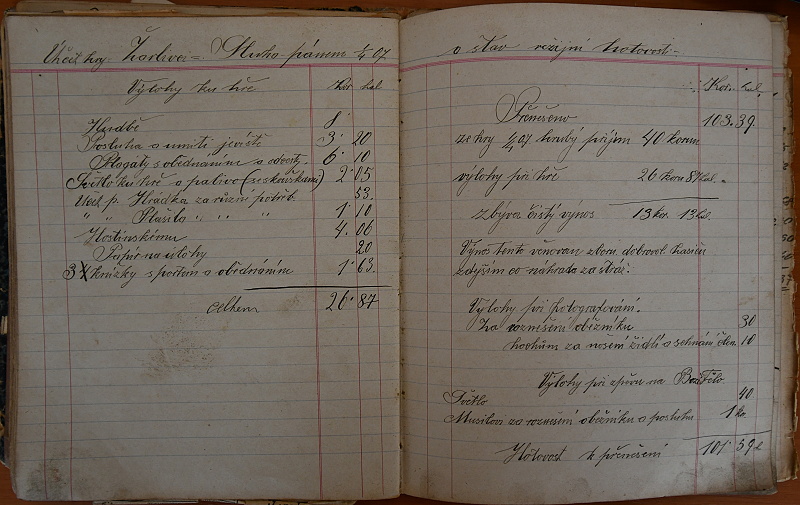 Účet hry Žárlivec = Stuha-pánem 1/4 07
Výlohy ku hře Kor. hal
Hudbě 8
Posluha a umití jeviště 3· 20
Plogáty s objednáním a odvoz. 6· 10
Světlo ku hře a palivo (se zkouškami) 2· 05
Učit p. Hrádka za různé potřeb. 53.
" " Plašilo " " " 1· 10
Hostinskému 4. 06
Papír na úlohy 20
3 X kružky s portem a objednáním 1· 63.
Celkem 26· 87
o stav režijní hotovosti
Kor. hal.
Přenešeno 103. 39.
ze hry 1/4 07. hrubý příjem 40 korun
výlohy při hře 26 koru 87 hal.
zbývá čistý výnos 13 kor. 13 hal.
Výnos tento věnován sboru dobrovol. hasičů
zdejším co náhrada za stráž.
Výlohy při fotografování.
Za roznešení oběžníku 30
hochům za nosení židlí a sehnání člen. 10
Výlohy při zpěvu na Bož. Tělo.
Světlo 40
Musilovi za roznešení oběžníku a posluhu 1 kr.
Hotovost k přenešení 101· 59 h